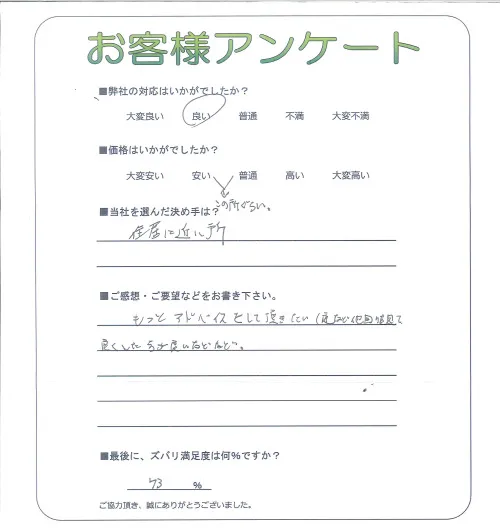 お客様アンケート
■弊社の対応はいかがでしたか？
大変良い 良い 普通 不満 大変不満
■価格はいかがでしたか？
大変安い 安い 普通 高い 大変高い
この所ぐらい。
■当社を選んだ決め手は？
住居に近い所
■ご感想・ご要望などをお書き下さい。
もっと アドバイスをして頂きたい
良くした方が良いなどなど。
■最後に、ズバリ満足度は何％ですか？
93 ％
ご協力頂き、誠にありがとうございました。